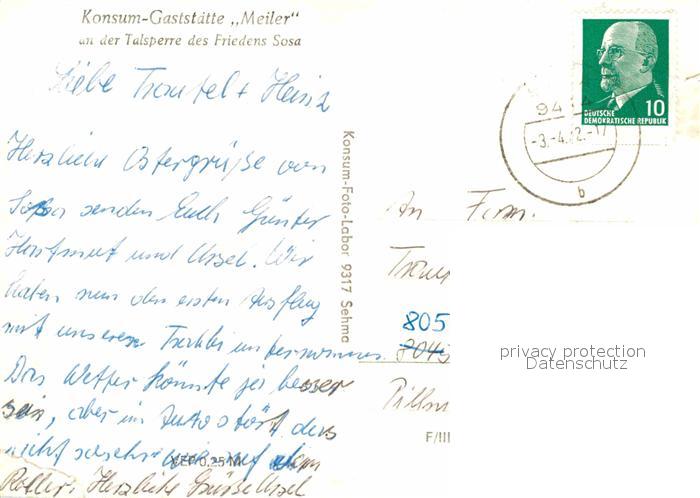 Konsum-Gaststätte „Meiler"
an der Talsperre des Friedens Sosa
Liebe Trautel + Heinz
Herzliche Ostergrüße von
Sosa senden Euch Günter
Hartmut und Ursel. Wir
haben nun den ersten Ausflug
mit unserem Trabbi unternommen.
Das Wetter könnte ja besser
sein, aber im Auto stört das
nicht so sehr wie auf dem
Roller. Herzliche Grüße Ursel
Konsum-Foto-Labor 9317 Sehma
VEB 0,25 M
DEUTSCHE
DEMOKRATISCHE REPUBLIK
10
-3.-4.
b
An Fam.
Trau
805
Pilln
F/III
privacy protection
Datenschutz